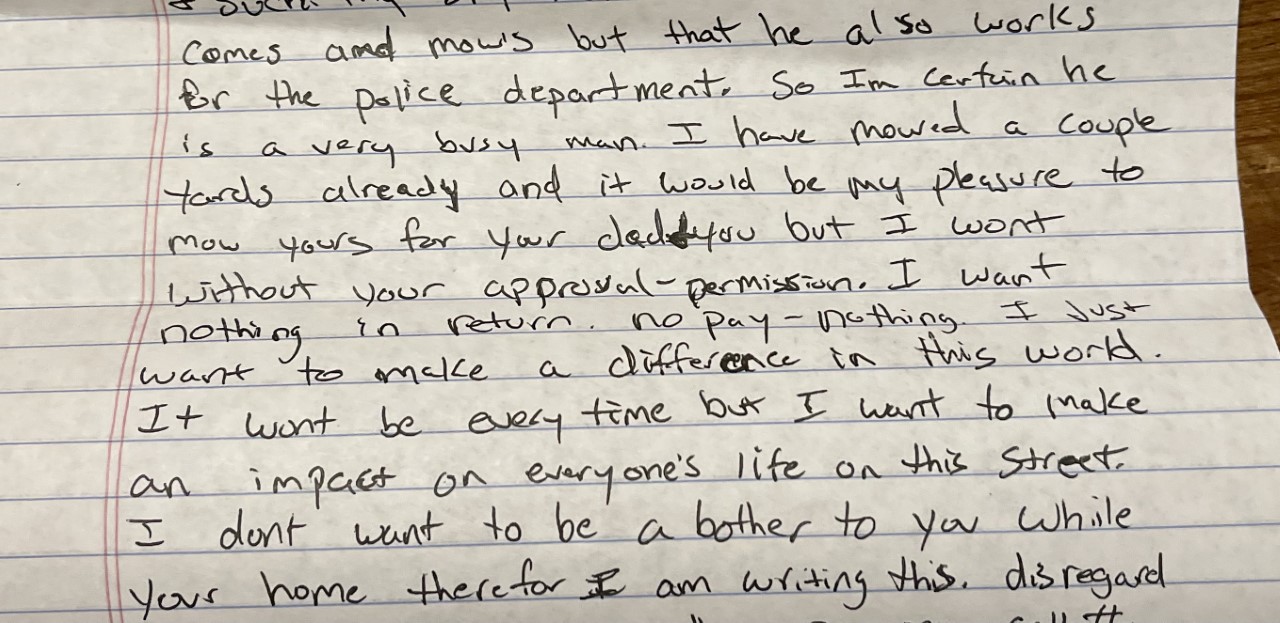 such my
comes and mow's but that he also works
for the police department. So Im certain he
is a very busy man. I have mowed a couple
yards already and it would be my pleasure to
mow yours for your dad+you but I wont
without your approval-permission. I want
nothing in return. no pay-nothing. I Just
want to make a difference in this world.
It wont be every time but I want to make
an impact on everyone's life on this Street.
I dont want to be a bother to you while
your home therefor I am writing this. disregard